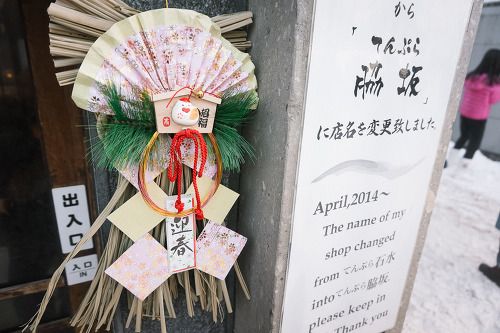 招福
迎春
出入口
入口
から
「てんぷら
脇坂」
に店名を変更致しました。
April,2014~
The name of my
shop changed
from てんぷら石水
into てんぷら脇坂.
please keep in
Thank you